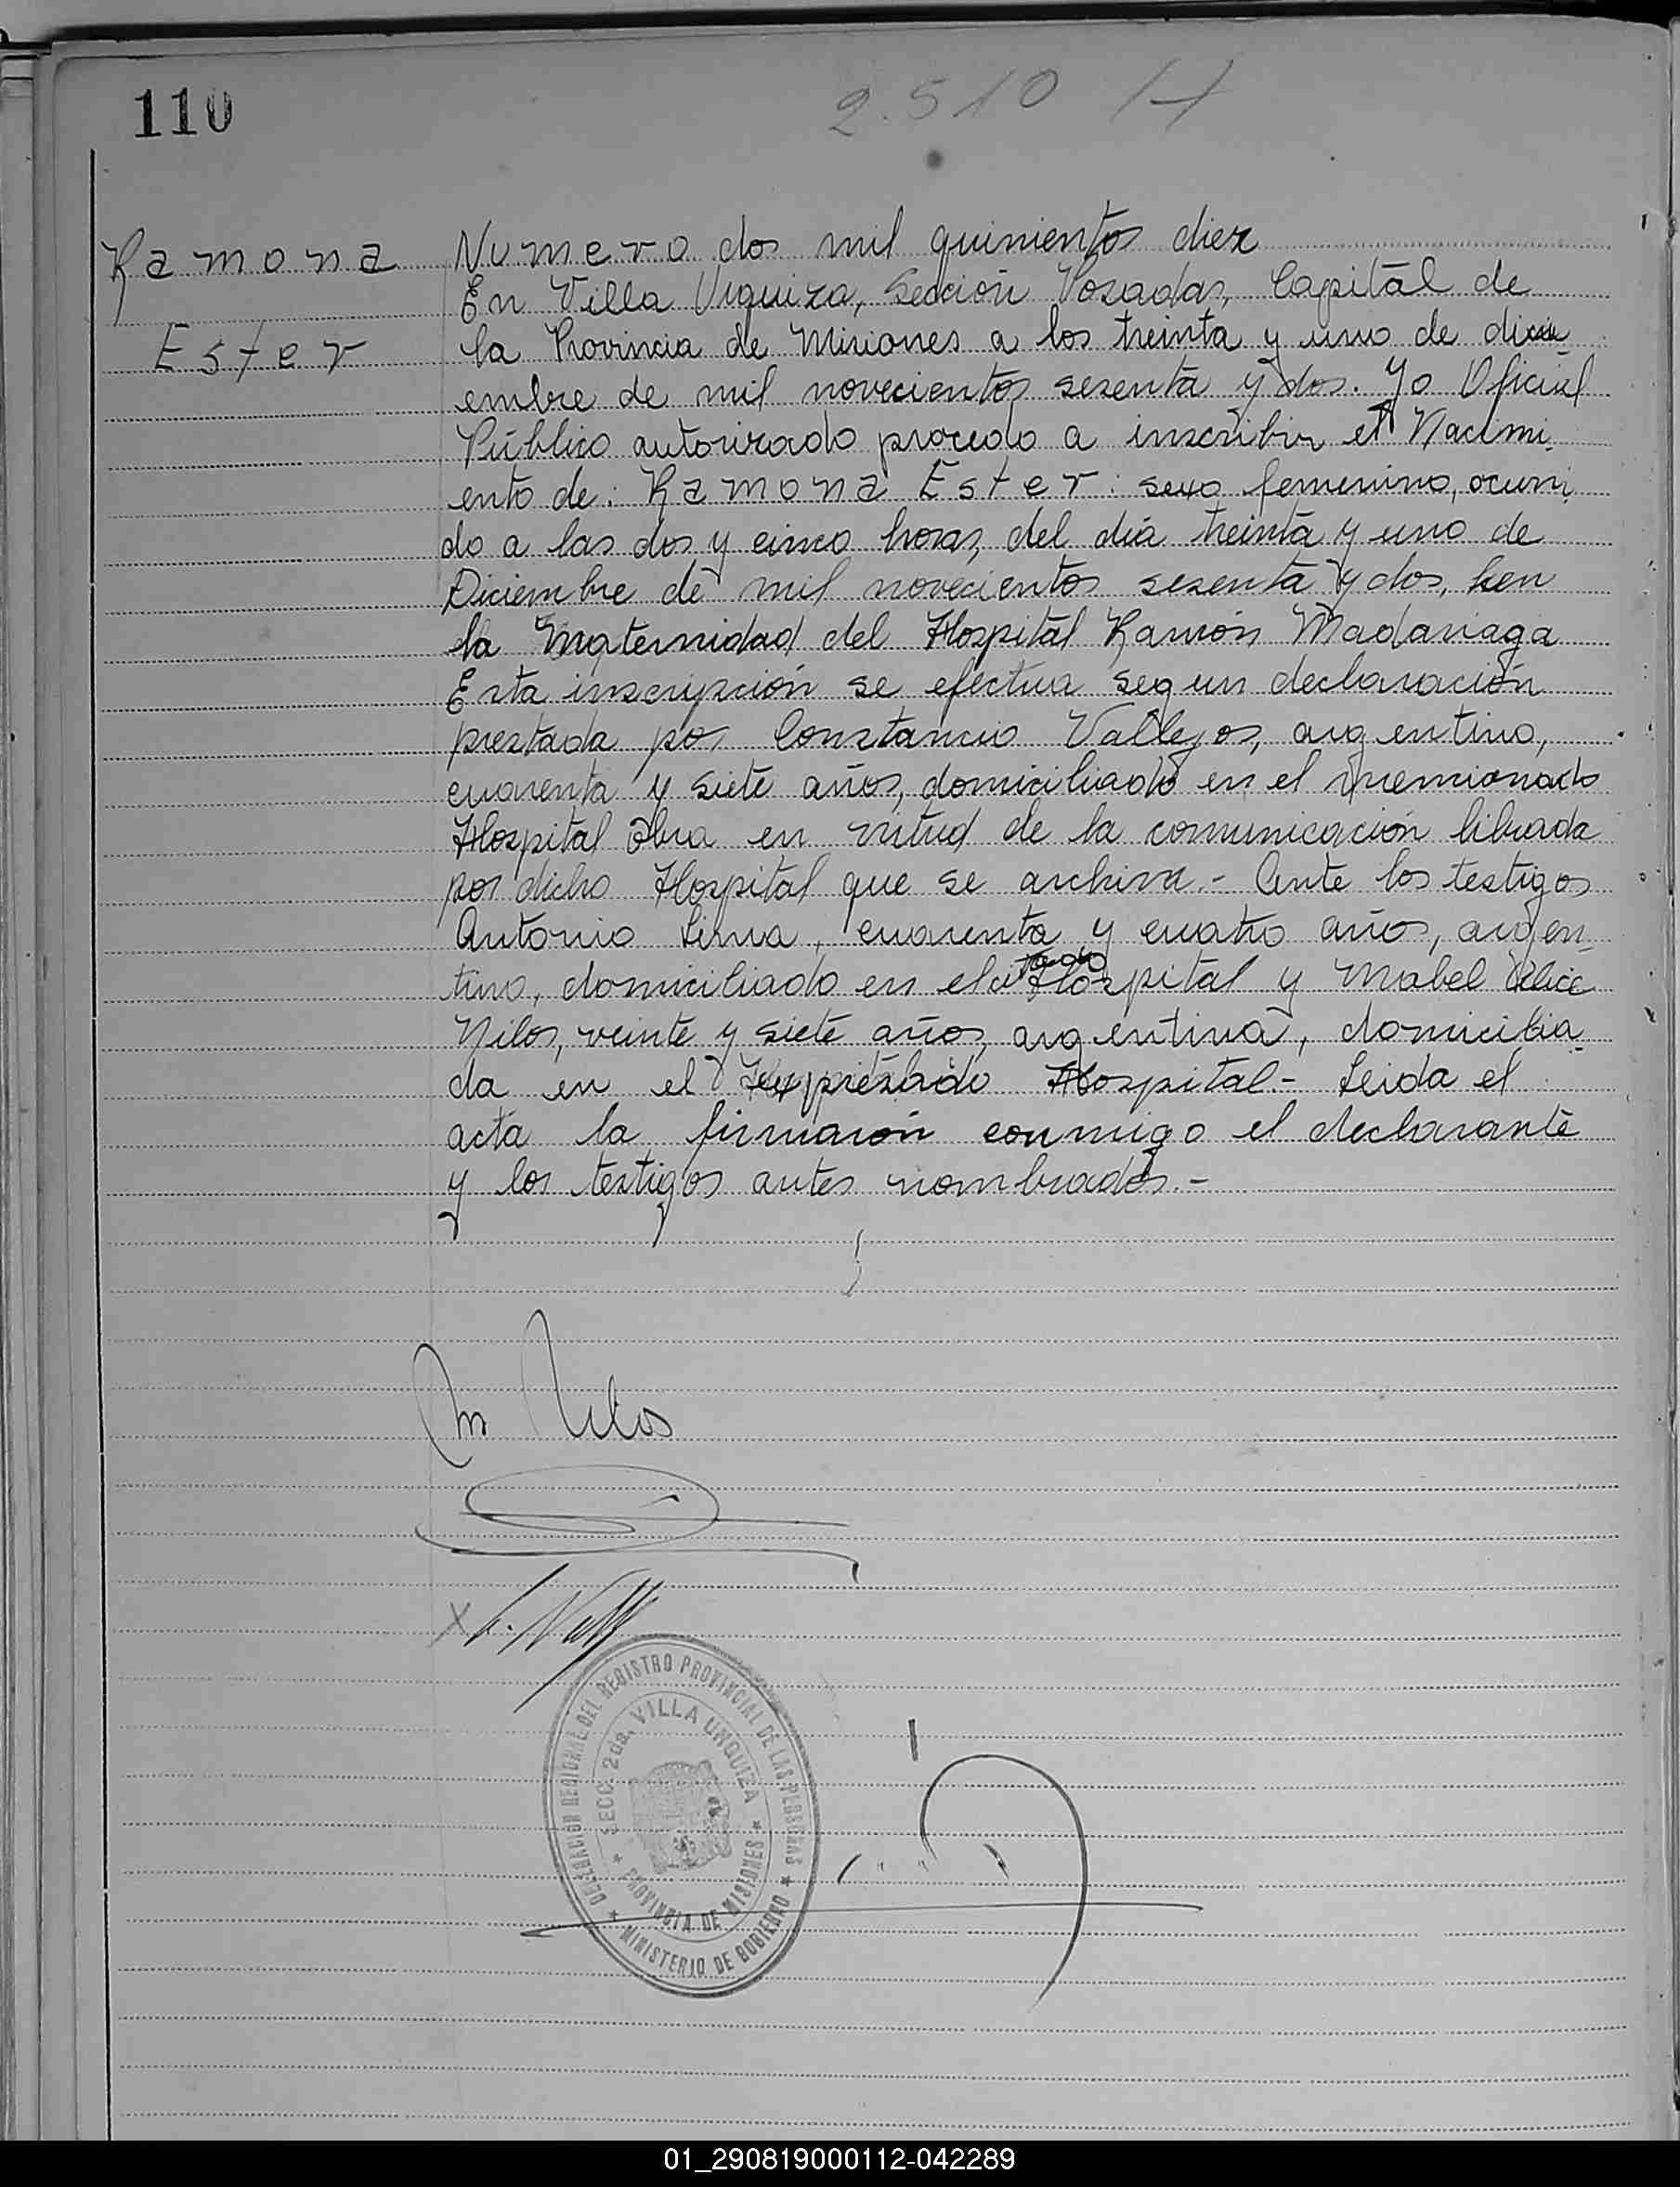 110
2.510 H
Ramona
Ester
Numero dos mil quinientos diez
En Villa Urquiza, Sección Posadas, Capitál de
la Provincia de Misiones a los treinta y uno de dici
embre de mil novecientos sesenta y dos. Yo Oficial
Público autorizado procedo a inscribir el Nacimi
ento de: Ramona Ester: sexo femenino, ocurri
do a las dos y cinco horas, del dia treinta y uno de
Diciembre de mil novecientos sesenta y dos, en
la Maternidad del Hospitál Ramón Madariaga
Esta inscripción se efectua segun declaración
prestada por Constancio Vallejos, argentino,
cuarenta y siete años, domiciliado en el mencionado
Hospital Obra en vitud de la comunicación librada
por dicho Hospital que se archiva.- Ante los testigos
Antonio Lima, cuarenta y cuatro años, argen-
tino, domiciliado en el citado Hospital y Mabel Alice
Nilos, veinte y siete años, argentina, domicilia
da en el expresado Hospital.- Leida el
acta la firmarón conmigo el declarante
y los testigos antes nombrados.-
M Nilos
DELEGACION REGIONAL DEL REGISTRO PROVINCIAL DE LAS PERSONAS
SECC. 2da. VILLA URQUIZA
PROVINCIA DE MISIONES
MINISTERIO DE GOBIERNO
01_290819000112-042289